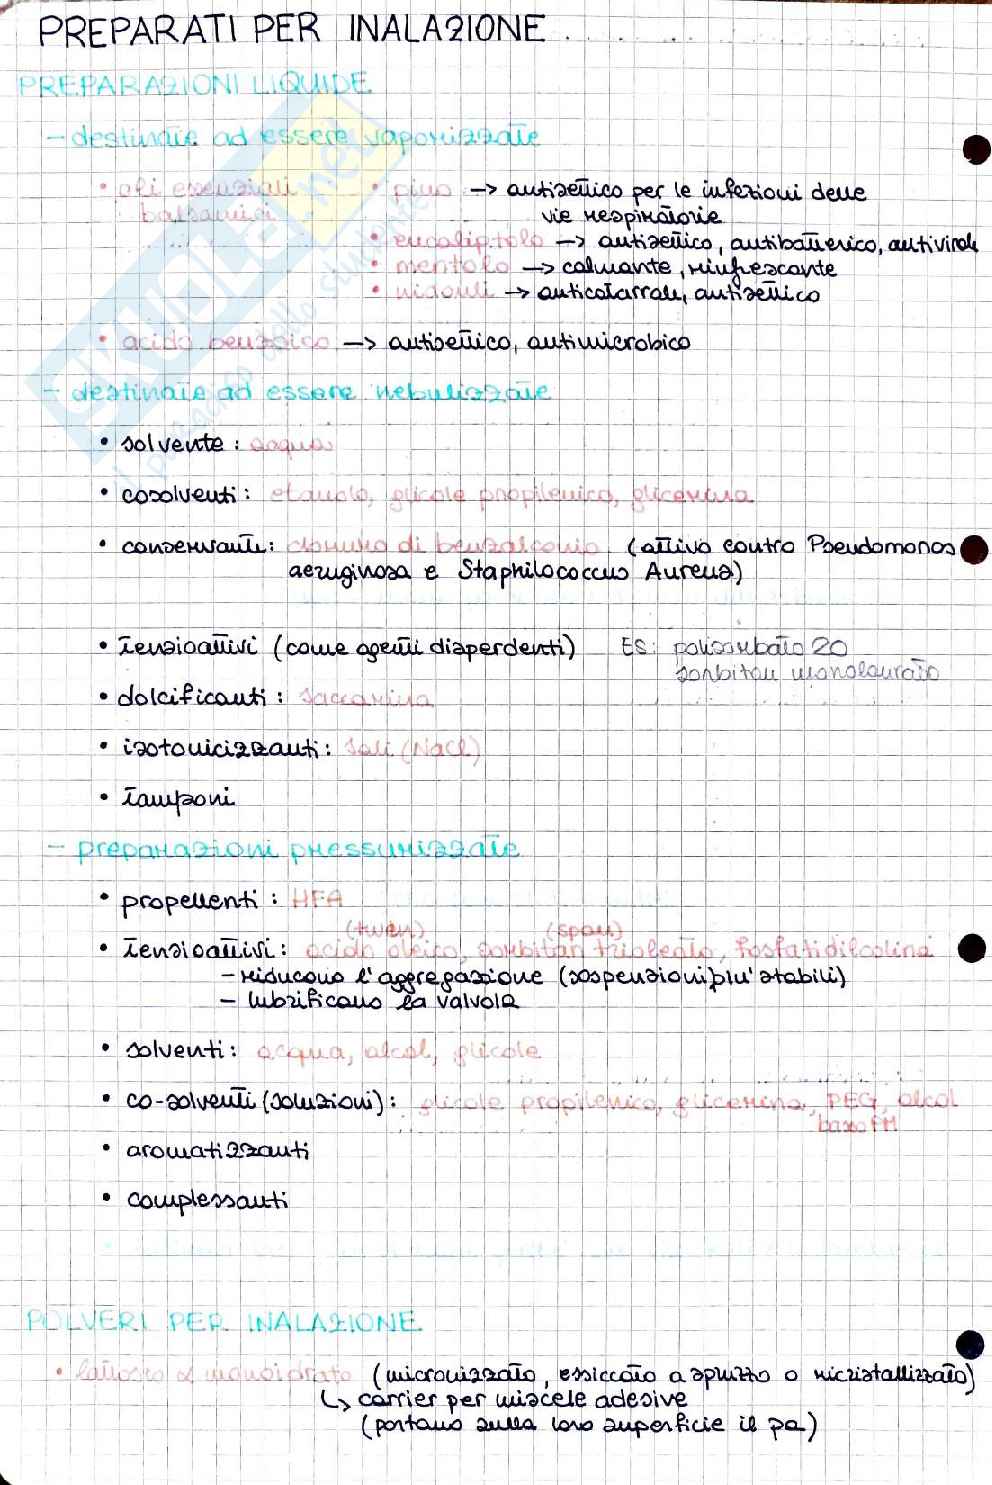 PREPARATI PER INALAZIONE
PREPARAZIONI LIQUIDE
- destinate ad essere vaporizzate
• oli essenziali • pino -> antisettico per le infezioni delle
balsamici vie respiratorie
• eucaliptolo -> antisettico, antibatterico, antivirale
• mentolo -> calmante, rinfrescante
• niaouli -> anticatarrale, antisettico
• acido benzoico -> antisettico, antimicrobico
- destinate ad essere nebulizzate
• solvente: acqua
• cosolventi: etanolo, glicole propilenico, glicerina
• conservante: cloruro di benzalconio (attivo contro Pseudomonas
aeruginosa e Staphilococcus Aureus)
• tensioattivi (come agenti disperdenti) ES: polisorbato 20
sorbitan monolaurato
• dolcificanti: saccarina
• isotonicizzanti: sali (NaCl)
• tamponi
- preparazioni pressurizzate
• propellenti: HFA
(twen) (span)
• tensioattivi: acido oleico, sorbitan trioleato, fosfatidilcolina
- riducono l'aggregazione (sospensioni più stabili)
- lubrificano la valvola
• solventi: acqua, alcol, glicole
• co-solventi (soluzioni): glicole propilenico, glicerina, PEG, alcol
basso PM
• aromatizzanti
• complessanti
POLVERI PER INALAZIONE
• lattosio α monoidrato (micronizzato, essiccato a spruzzo o ricristallizzato)
↳ carrier per miscele adesive
(portano sulla loro superficie il pa)
SKUOLA.net
il paradiso dello studente